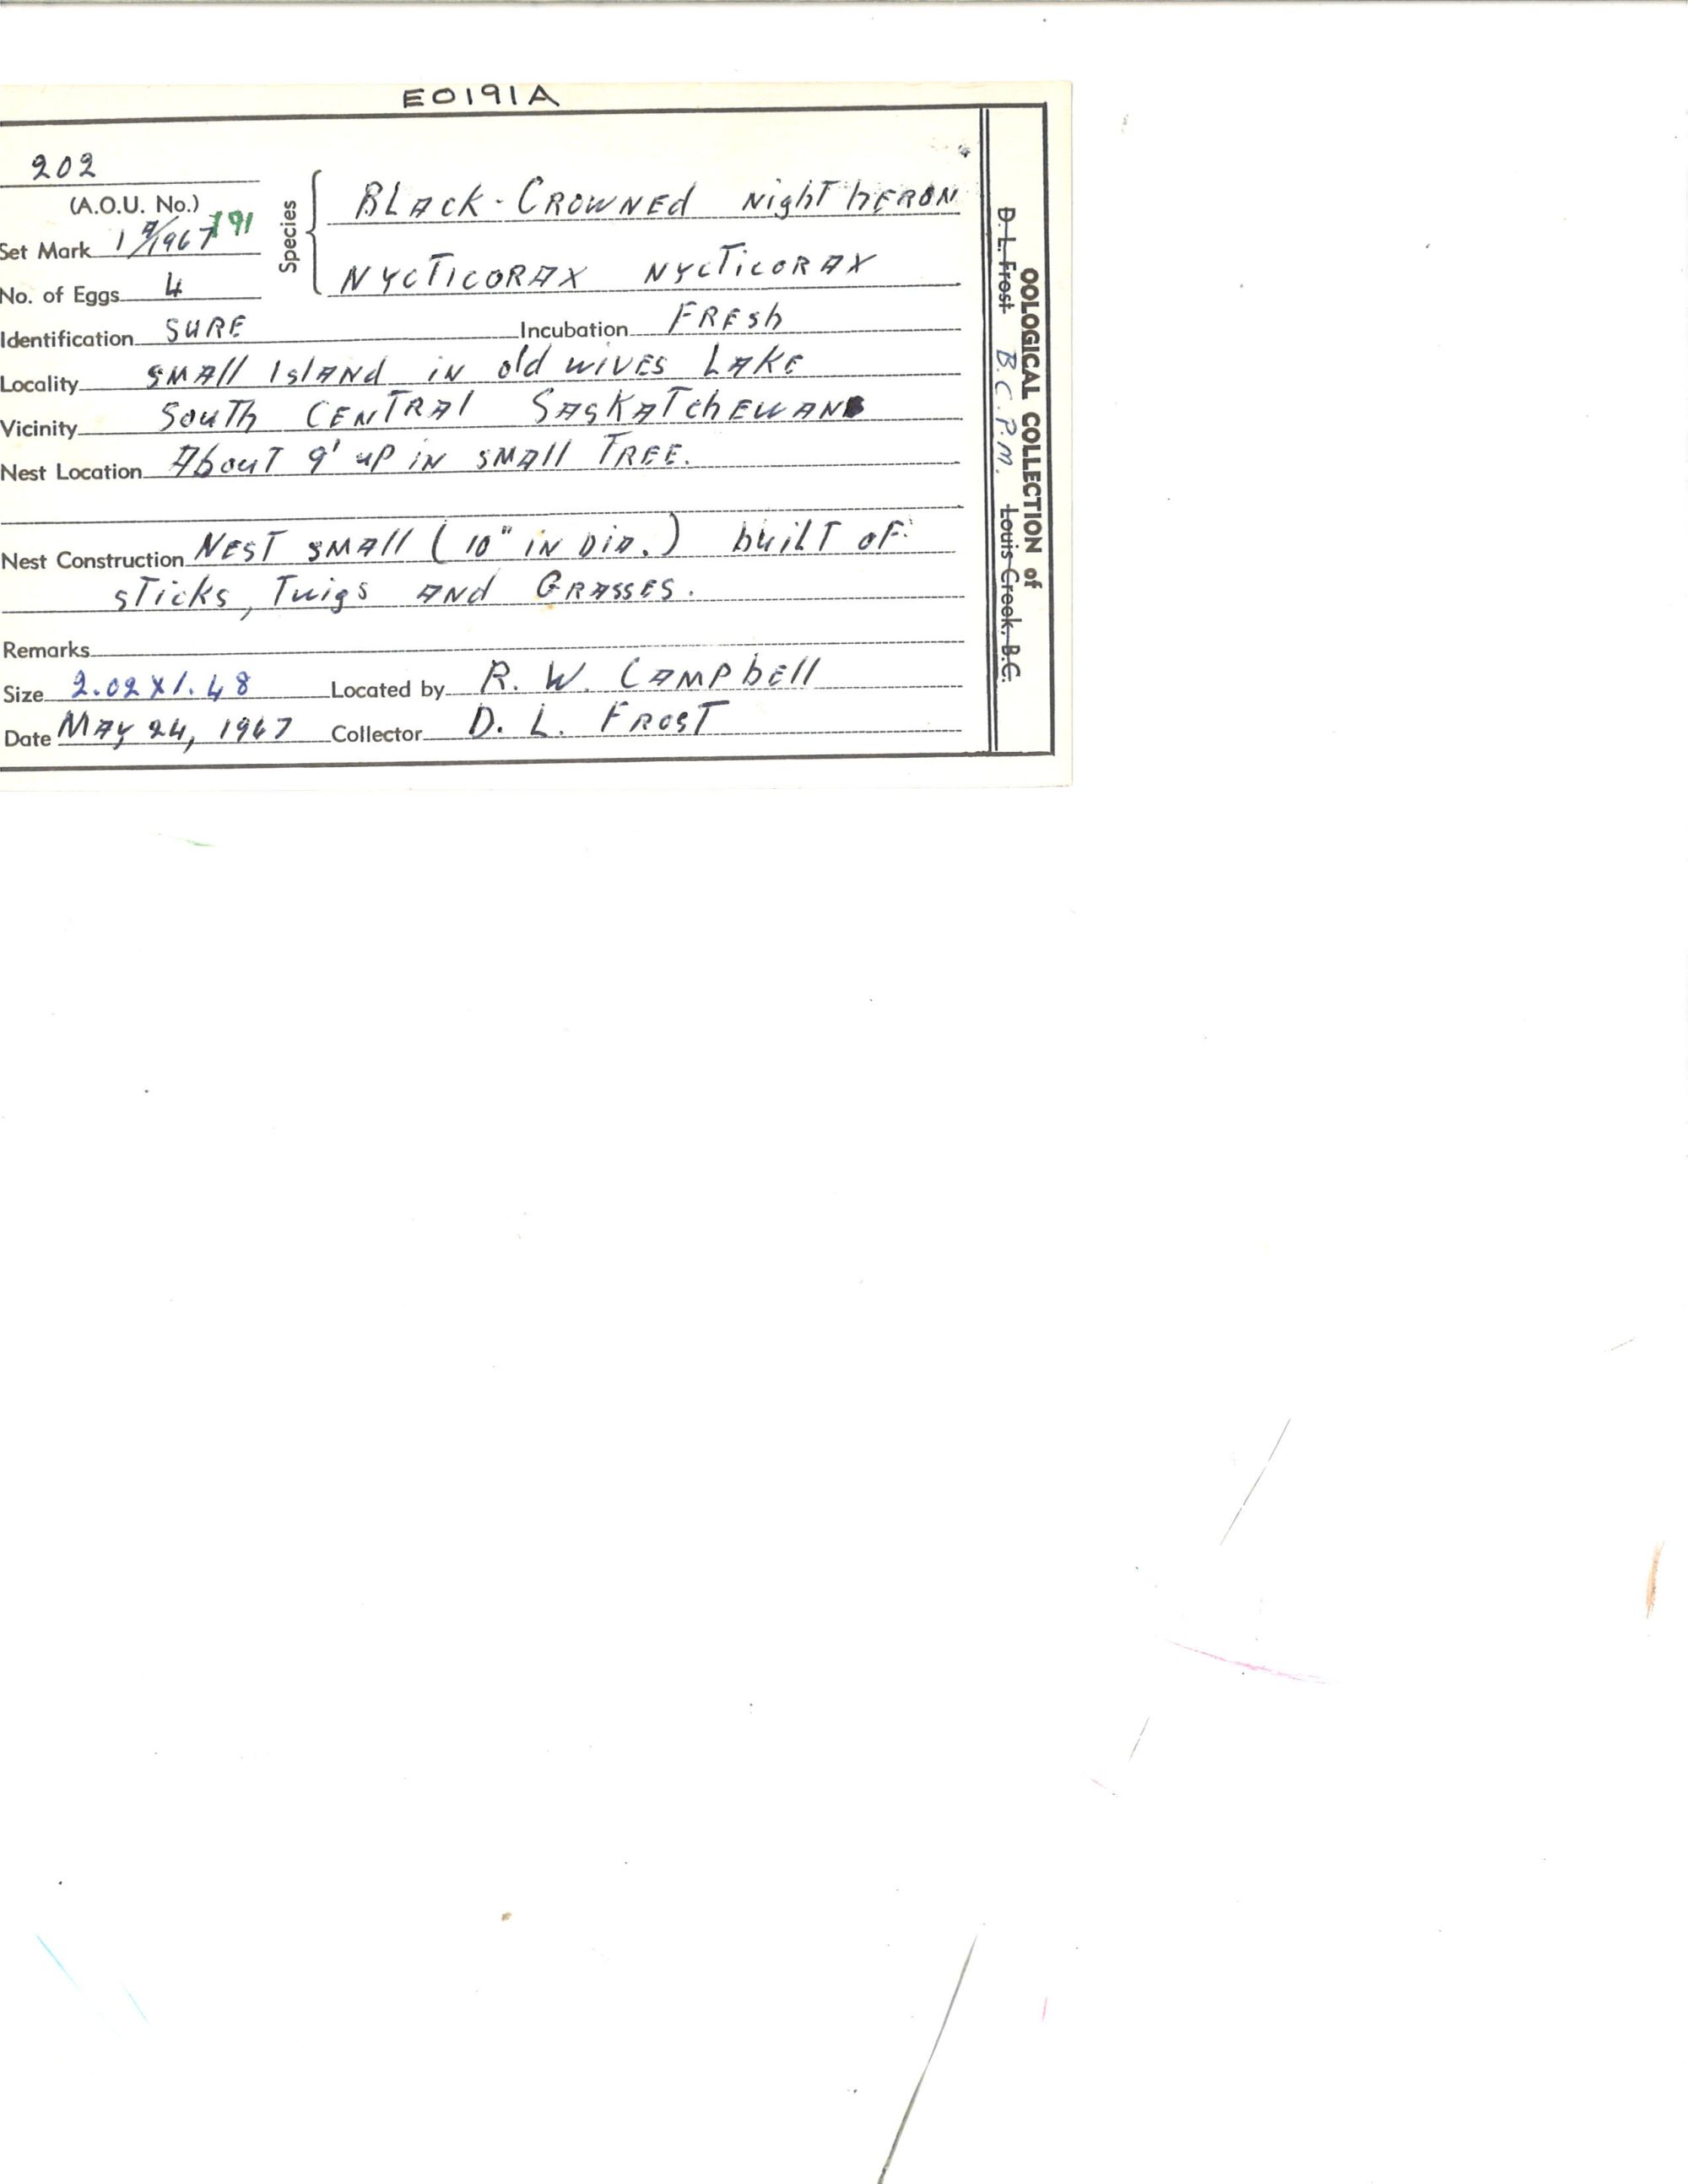 E0191A
202
(A.O.U. No.)
191
Set Mark 1 4/1967
No. of Eggs 4
Species
BLACK-CROWNED Night hERON
NYCTICORAX NYCTICORAX
Identification SURE Incubation FRESh
Locality SMAll ISlANd iN old wiVES LAKE
Vicinity South CENTRAl SASKATchEWAN
Nest Location About 9' uP iN SMAll TREE.
Nest Construction NEST SMAll (10" iN DiA.) builT oF:
STicks, Twigs ANd GRASSES.
Remarks
Size 2.02 x 1.48 Located by R. W. CAMPbEll
Date MAY 24, 1967 Collector D. L. FROST
OOLOGICAL COLLECTION of
D. L. Frost B.C.P.M. Louis Creek, B.C.